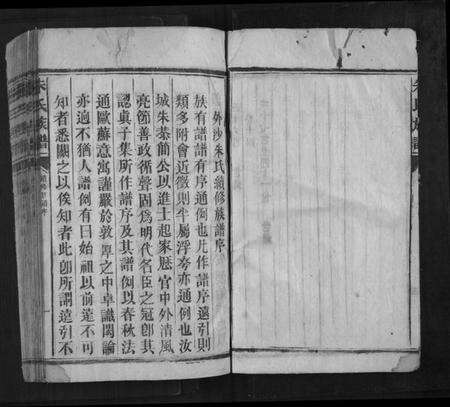 外沙朱氏續修族譜序
族有譜譜有序通例也凡作譜序遠引則
類多附會近徵則半屬浮夸亦通例也汝
城朱恭簡公以進士起家歷官中外清風
亮節善政循聲固為明代名臣之冠卽其
認真子集所作譜序及其譜例以春秋法
通歐蘇意寓謹嚴於敦厚之中卓識閎論
亦迥不猶人譜例有曰始祖以前遠不可
知者悉闕之以俟知者此卽所謂遠引不
朱氏族譜